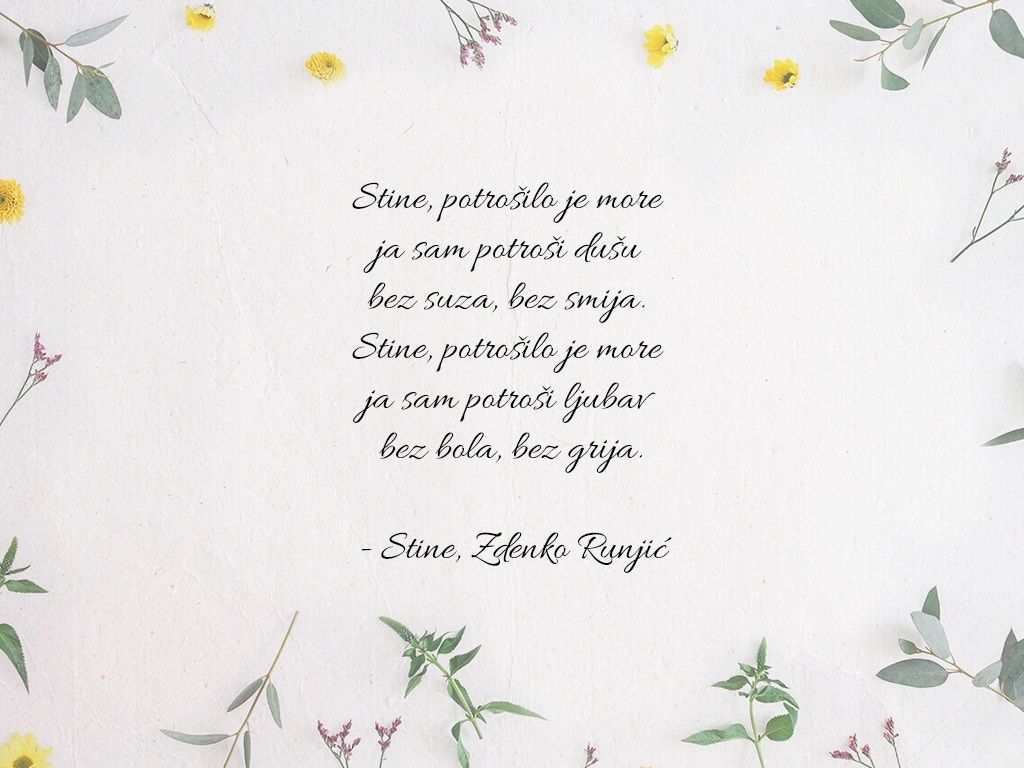 Stine, potrošilo je more
ja sam potroši dušu
bez suza, bez smija.
Stine, potrošilo je more
ja sam potroši ljubav
bez bola, bez grija.
- Stine, Zdenko Runjić